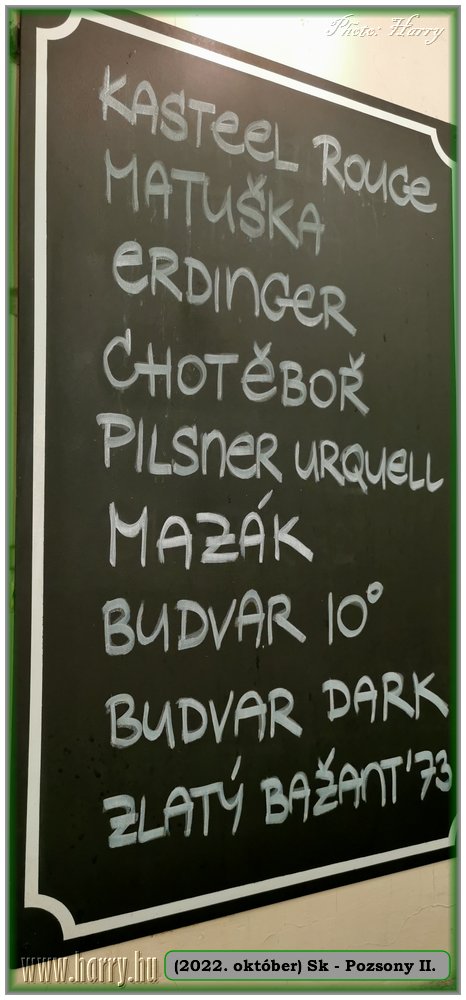 Photo: Harry
KASTEEL ROUGE
MATUŠKA
ERDINGER
CHOTĚBOŘ
PILSNER URQUELL
MAZÁK
BUDVAR 10°
BUDVAR DARK
ZLATÝ BAŽANT'73
www.harry.hu
(2022. október) Sk - Pozsony II.